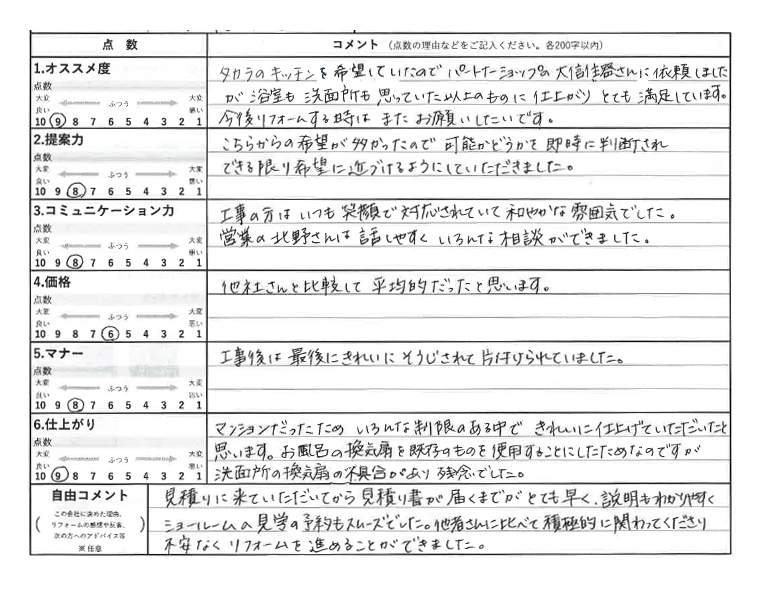 点 数
コメント （点数の理由などをご記入ください。各200字以内）
1.オススメ度
点数
大変 ふつう 大変
良い 悪い
10 9 8 7 6 5 4 3 2 1
タカラのキッチンを希望していたので パートナーショップの 大信住器さんに依頼しました
が 浴室も 洗面所も 思っていた以上のものに 仕上がり とても 満足しています。
今後リフォームする時は また お願いしたいです。
2.提案力
点数
大変 ふつう 大変
良い 悪い
10 9 8 7 6 5 4 3 2 1
こちらからの希望が多かったので 可能かどうかを 即時に判断され
できる限り希望に近づけるようにしていただきました。
3.コミュニケーション力
点数
大変 ふつう 大変
良い 悪い
10 9 8 7 6 5 4 3 2 1
工事の方は いつも 笑顔で 対応されていて 和やかな 雰囲気でした。
営業の 北野さんは 話しやすく いろんな 相談ができました。
4.価格
点数
大変 ふつう 大変
良い 悪い
10 9 8 7 6 5 4 3 2 1
他社さんと比較して 平均的だったと思います。
5.マナー
点数
大変 ふつう 大変
良い 悪い
10 9 8 7 6 5 4 3 2 1
工事後は 最後にきれいに そうじされて 片付けられていました。
6.仕上がり
点数
大変 ふつう 大変
良い 悪い
10 9 8 7 6 5 4 3 2 1
マンションだったため いろんな 制限のある中で きれいに仕上げていただいたと
思います。お風呂の換気扇を既存のものを使用することにしたためなのですが
洗面所の換気扇の不具合があり 残念でした。
自由コメント
この会社に決めた理由、
リフォームの感想や反省、
次の方へのアドバイス等
※任意
見積りに来ていただいてから 見積り書が届くまでがとても早く、説明もわかりやすく
ショールームの見学の予約もスムーズでした。他者さんに比べて積極的に関わってくださり
不安なく リフォームを 進めることができました。